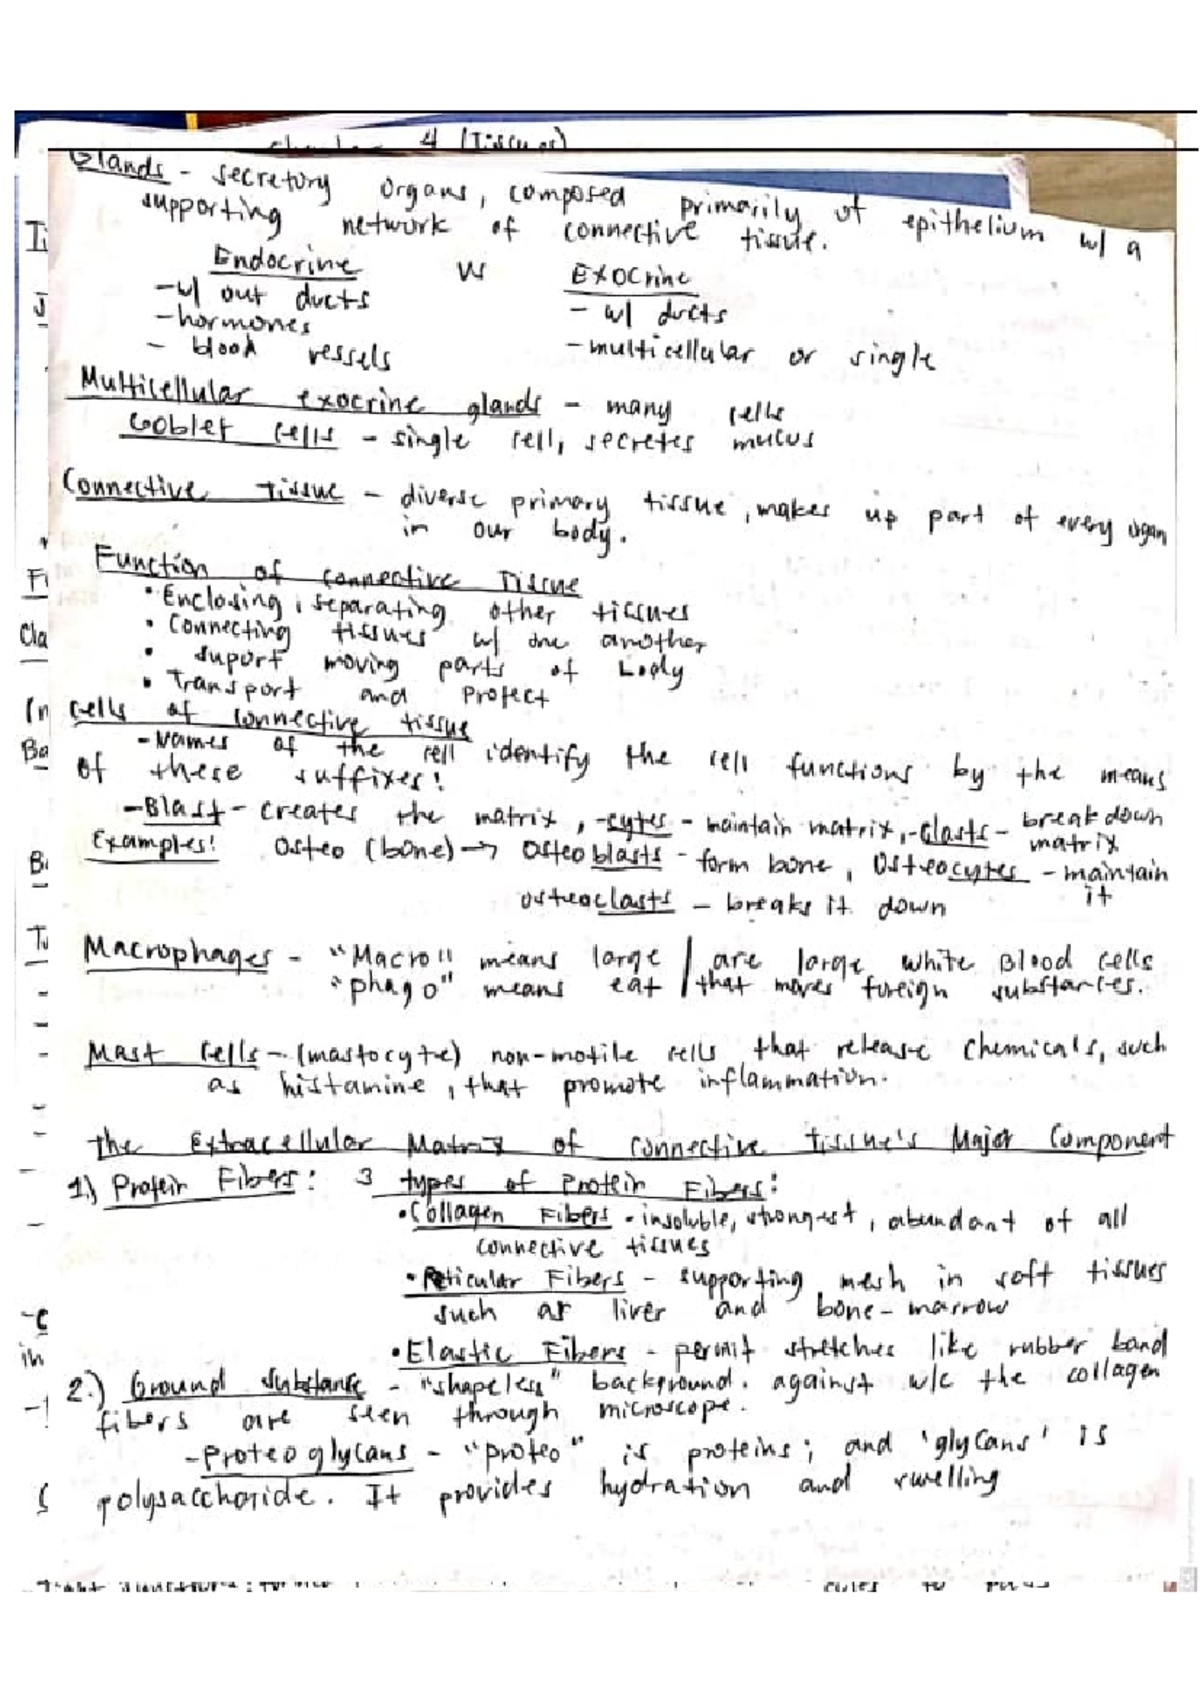 4 (Tissues)
Glands - secretory organs, composed primarily of epithelium w/ a
supporting network of connective tissue.
Endocrine vs Exocrine
- w/ out ducts - w/ ducts
- hormones
- blood vessels - multicellular or single
Multicellular exocrine glands - many cells
Goblet cells - single cell, secretes mucus
Connective Tissue - diverse primary tissue, makes up part of every organ
in our body.
Function of connective Tissue
• Enclosing, separating other tissues
• Connecting tissues w/ one another
• suport moving parts of body
• Transport and Protect
cells of connective tissue
- Names of the cell identify the cell functions by the means
of these suffixes:
- Blast - creates the matrix, -cytes - maintain matrix, -clasts - break down
matrix
Examples: Osteo (bone) → Osteoblasts - form bone, Osteocytes - maintain
it
osteoclasts - breaks it down
Macrophages - "Macro" means large / are large white Blood cells
"phago" means eat / that moves foreign substances.
Mast cells - (mastocyte) non-motile cells that release chemicals, such
as histamine, that promote inflammation.
The Extracellular Matrix of connective tissue's Major Component
1.) Protein Fibers: 3 types of Protein Fibers:
• Collagen Fibers - insoluble, strongest, abundant of all
connective tissues
• Reticular Fibers - supporting mesh in soft tissues
such as liver and bone-marrow
• Elastic Fibers - permit stretches like rubber band
2.) Ground substance - "shapeless" background. against w/c the collagen
fibers are seen through microscope.
- Proteoglycans - "proteo" is proteins; and 'glycans' is
polysaccharide. It provides hydration and swelling